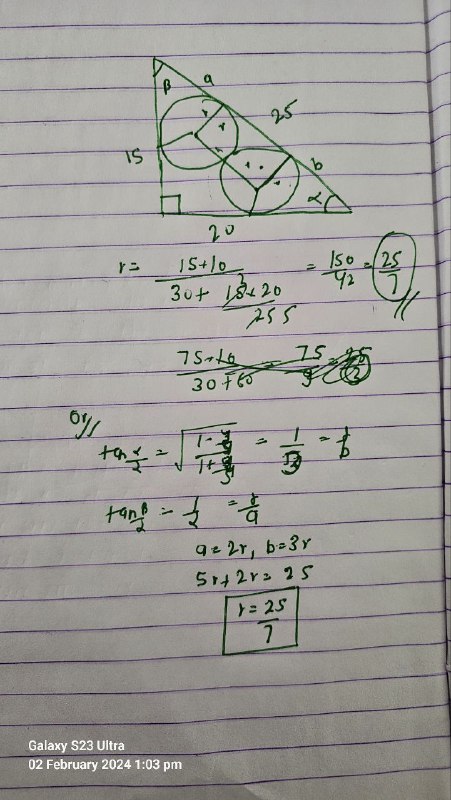 β a
25
r r
15
b
α
20
r = 15+10 / 30 + 15×20 / 25 = 150/42 = 25/7 //
Or //
tan α/2 = = 1/3 = r/b
tan β/2 = 1/2 = r/a
a = 2r, b = 3r
5r + 2r = 25
r = 25/7
Galaxy S23 Ultra
02 February 2024 1:03 pm